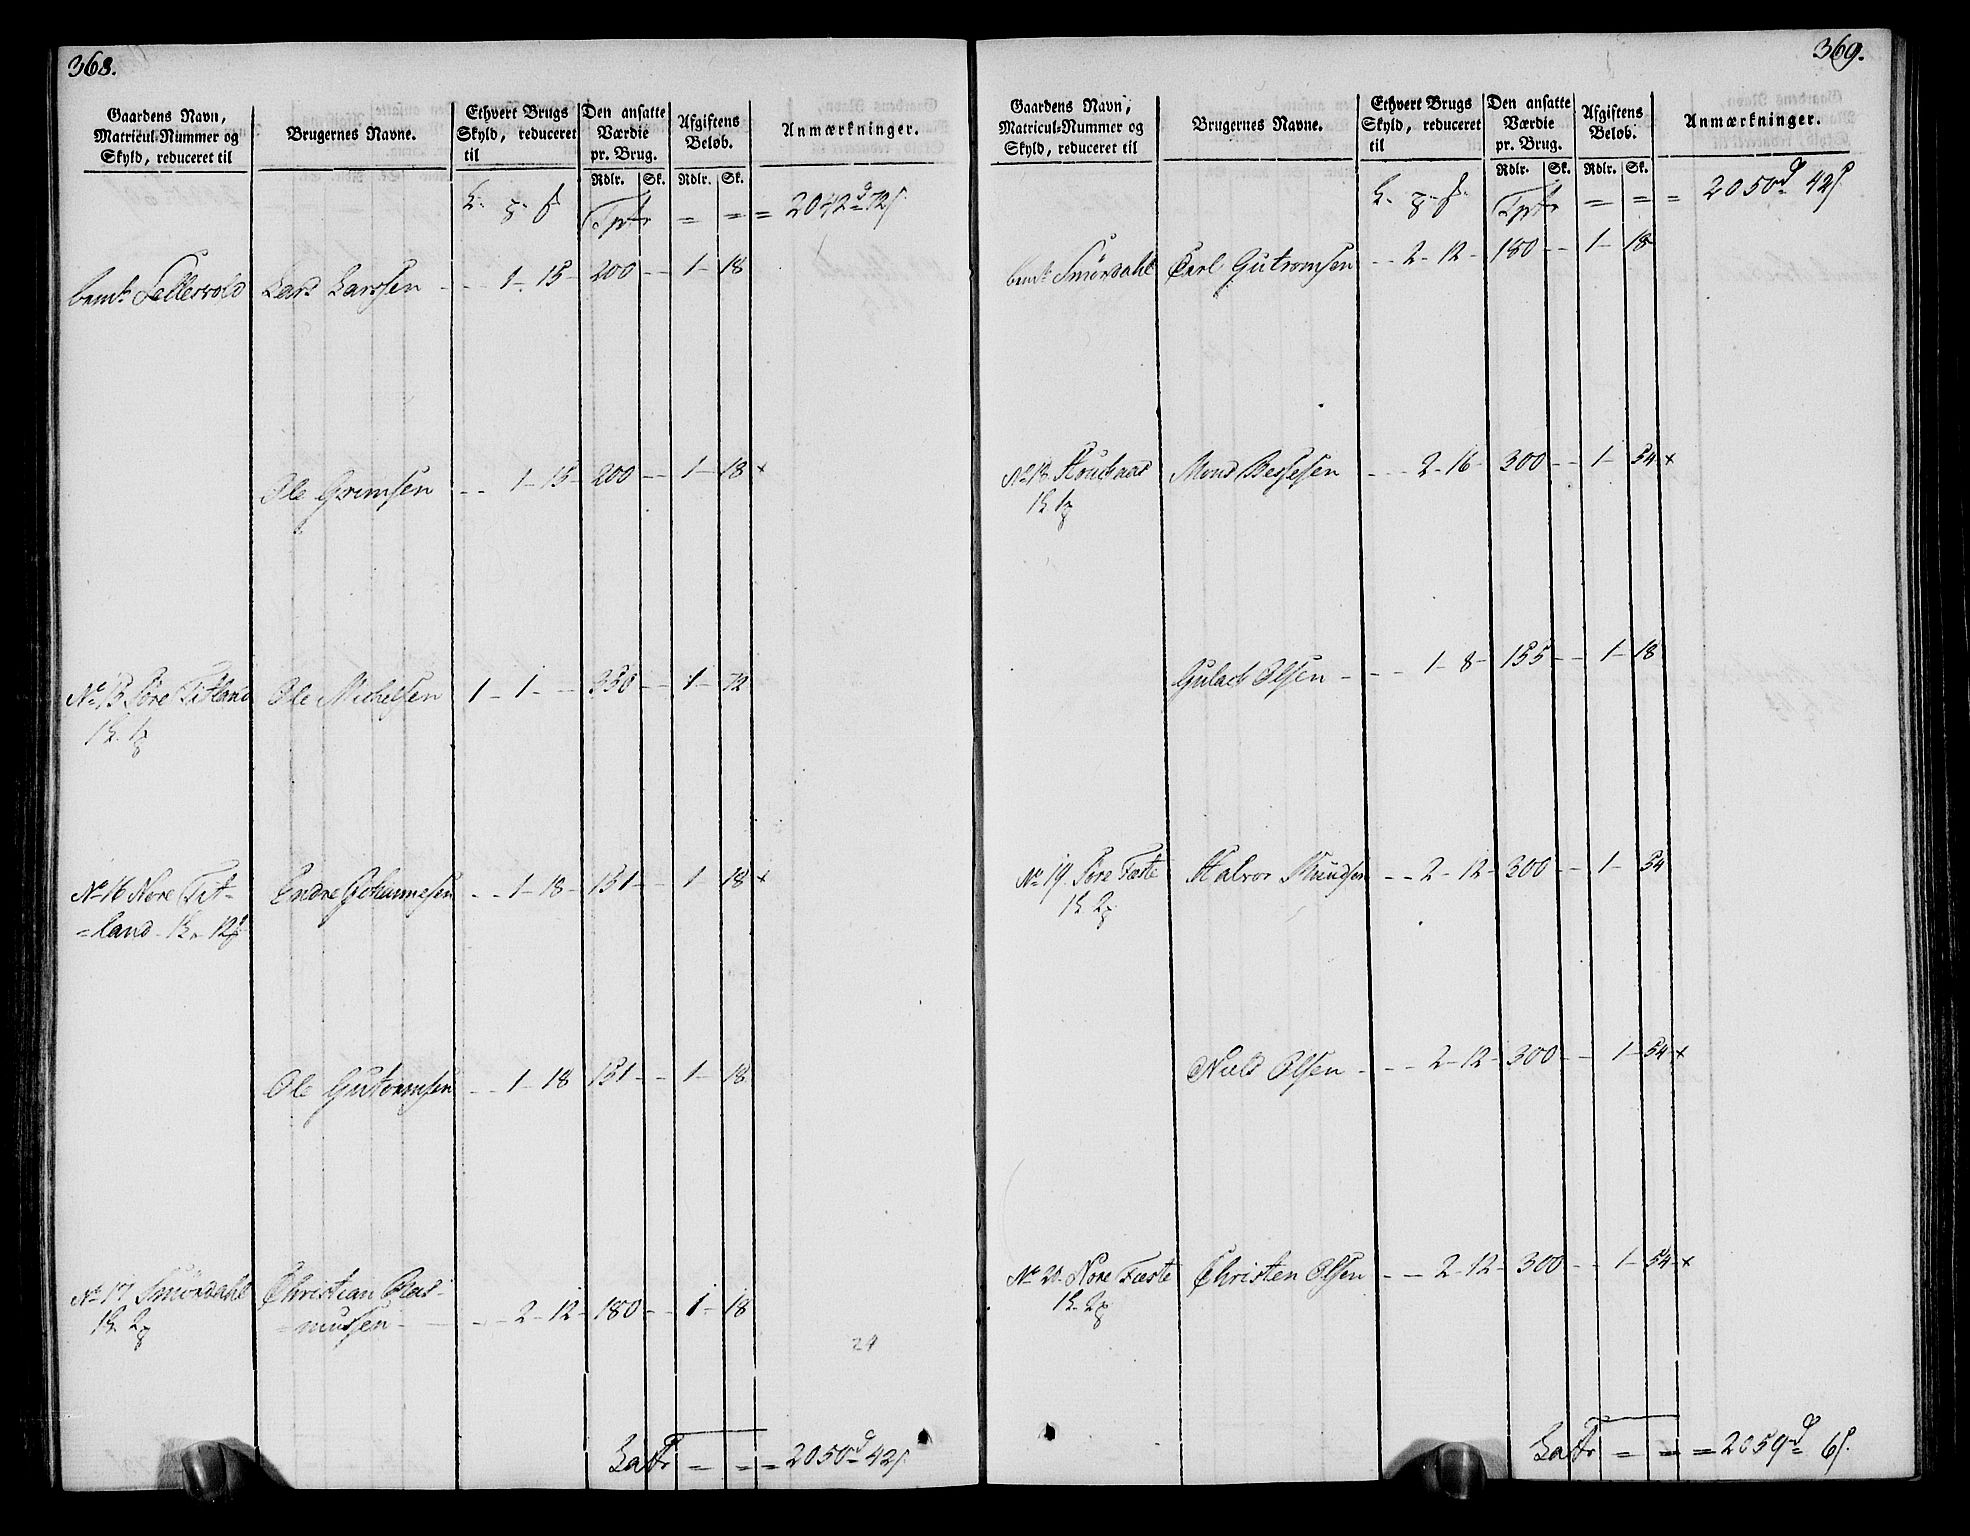 368.
Gaardens Navn,
Matricul-Nummer og
Skyld, reduceret til
Brugernes Navne.
Ethvert Brugs
Skyld, reduceret
til
Den ansatte
Værdie
pr. Brug.
Afgiftens
Beløb.
Anmærkninger.
Rdlr. Sk. Rdlr. Sk.
Tpt = = = 2042d 72s
bemte Tellevold Lars Larsen - - 1 - 15 - 200 - - 1 - 18
Ole Grimsen - - 1 - 15 - 200 - - 1 - 18 x
No 15 Søre Titland Ole Michelsen 1 - 1 - - 350 - - 1 - 72
No 16 Nore Tit- Endre Johannesen - - 1 - 18 - 151 - - 1 - 18 x
=land
Ole Guttormsen - - 1 - 18 151 - - 1 - 18
No 17 Smørdahl Christian Ras-
=mussen - - - 2 - 12 - 180 - - 1 - 18
24
Latr = = = 2050d 42s
369.
Gaardens Navn,
Matricul-Nummer og
Skyld, reduceret til
Brugernes Navne.
Ethvert Brugs
Skyld, reduceret
til
Den ansatte
Værdie
pr. Brug.
Afgiftens
Beløb.
Anmærkninger.
Rdlr. Sk. Rdlr. Sk.
Tpt = = = 2050d 42s
bemte Smørdahl Carl Gutromsen - - 2 - 12 - 180 - - 1 - 18
No 18 Mons - - 2 - 16 - 300 - - 1 - 54 x
Gulack Olsen - - - 1 - 8 - 155 - - 1 - 18
No 19. Søre Tæste Halvor Knudsen - - 2 - 12 - 300 - - 1 - 54
Niels Olsen - - - 2 - 12 - 300 - - 1 - 54 x
No 20. Nore Tæste Christen Olsen - - 2 - 12 - 300 - - 1 - 54 x
Latr = = = 2059d 6s